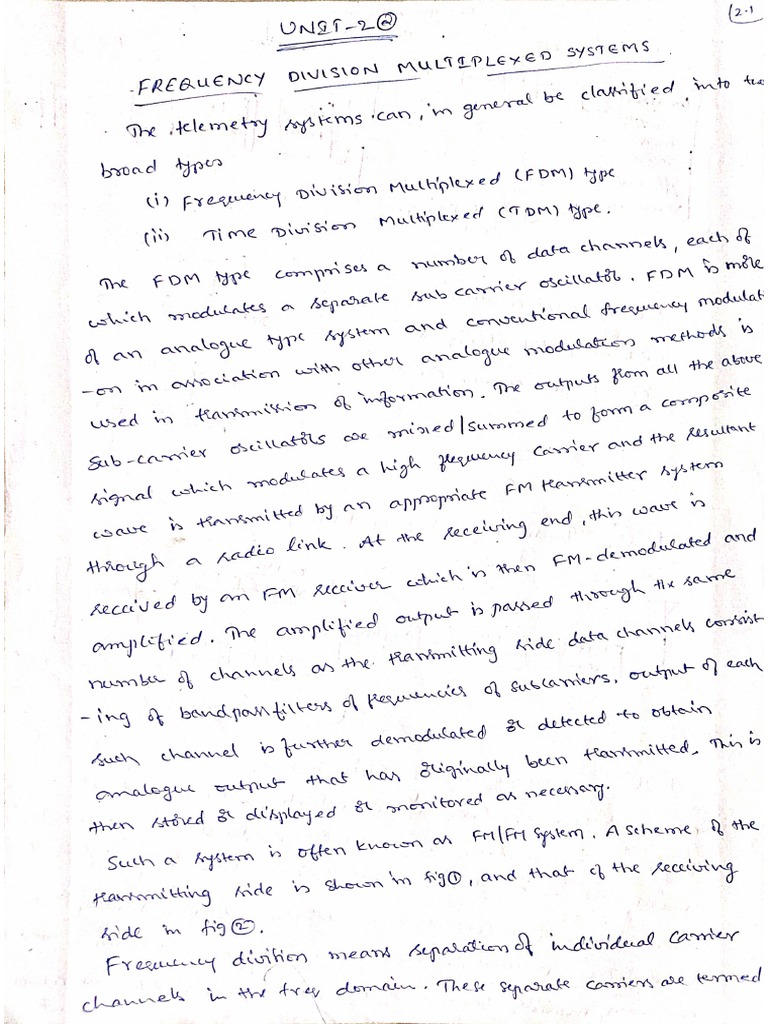 (2.1
UNIT-2②
FREQUENCY DIVISION MULTIPLEXED SYSTEMS
The telemetry systems can, in general be classified into two
broad types
(i) Frequency Division Multiplexed (FDM) type
(ii) Time Division Multiplexed (TDM) type.
The FDM type comprises a number of data channels, each of
which modulates a separate sub carrier oscillator. FDM is more
of an analogue type system and conventional frequency modulat
-on in association with other analogue modulation methods is
used in transmission of information. The outputs from all the above
sub-carrier oscillators are mixed/summed to form a composite
signal which modulates a high frequency carrier and the resultant
wave is transmitted by an appropriate FM transmitter system
through a radio link. At the receiving end, this wave is
received by an FM receiver which is then FM-demodulated and
amplified. The amplified output is passed through the same
number of channels as the transmitting side data channels consist
-ing of bandpass filters of frequencies of subcarriers. output of each
such channel is further demodulated or detected to obtain
analogue output that has originally been transmitted. This is
then stored or displayed or monitored as necessary.
Such a system is often known as FM/FM System. A scheme of the
transmitting side is shown in fig①, and that of the receiving
side in fig②.
Frequency division means separation of individual carrier
channels in the freq domain. These separate carriers are termed